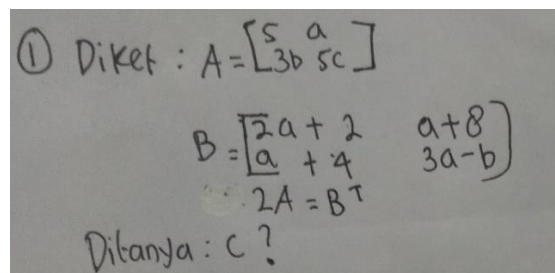 ① Diket : A = [5 a
3b 5c]
B = [2a + 2 a+8
a + 4 3a-b]
2A = Bᵀ
Ditanya : C ?